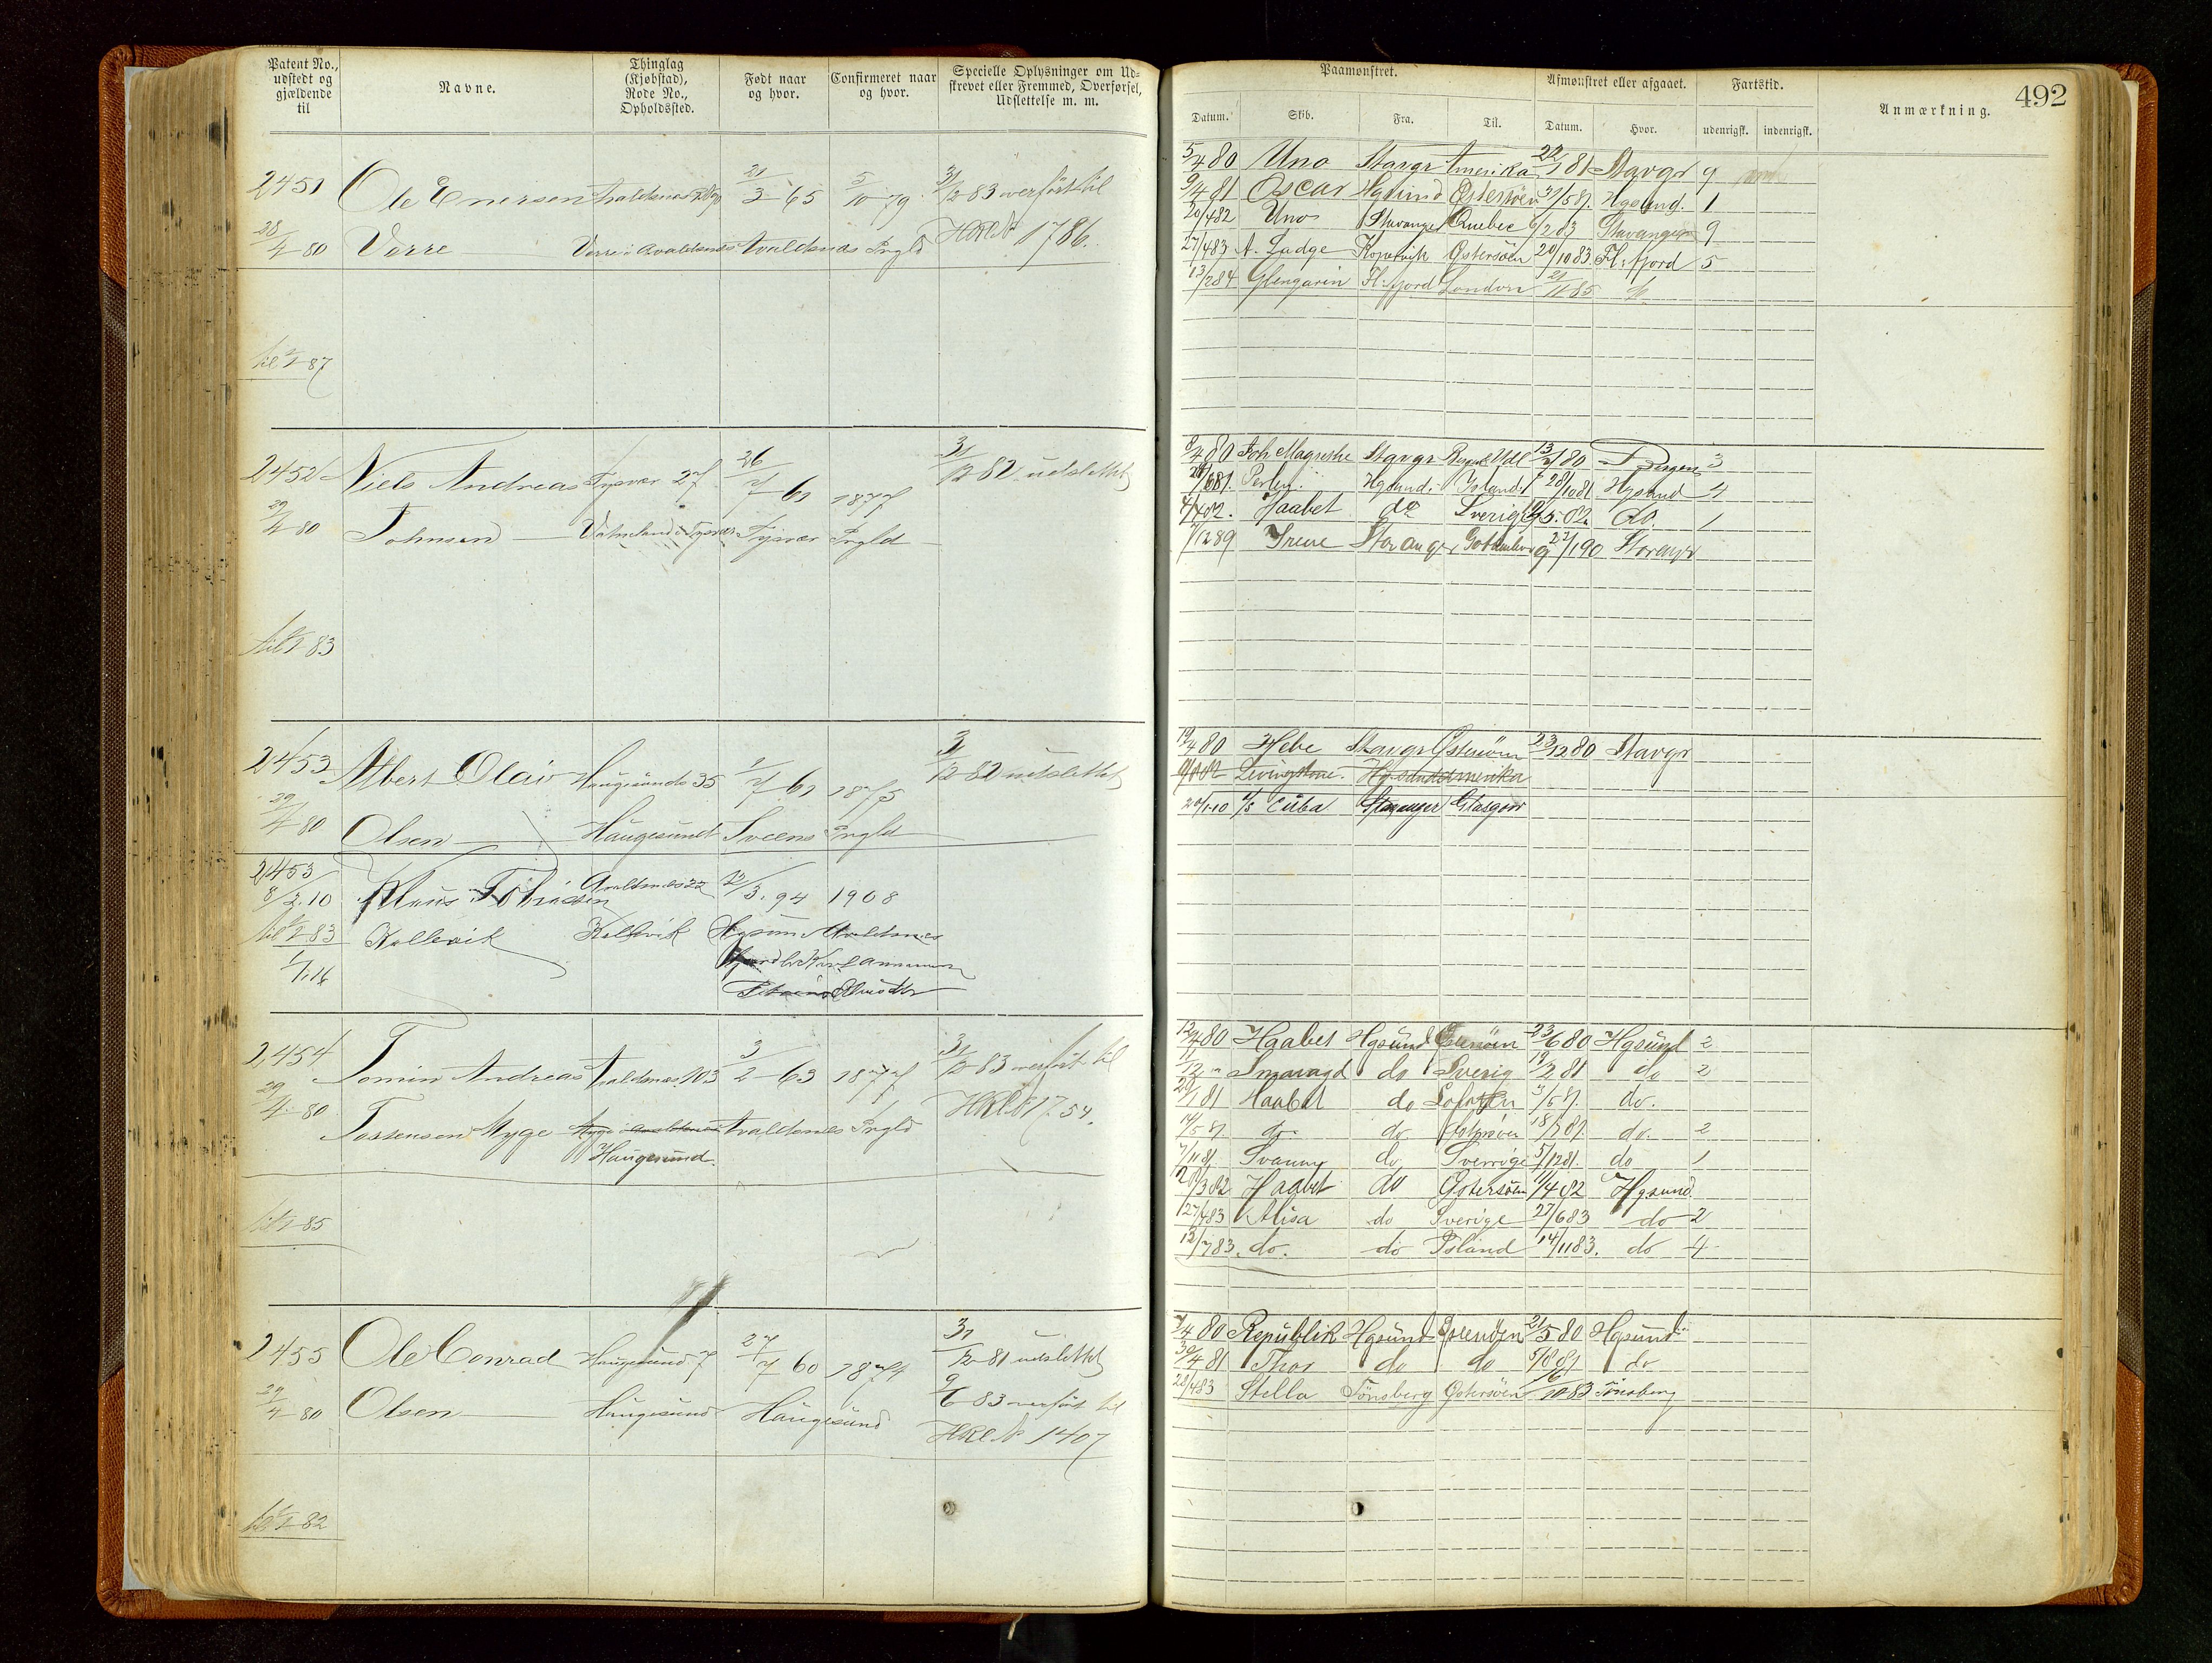 Patent No., udstedt og gjældende til
Navne.
Thinglag (Kjøbstad), Rode No., Opholdssted.
Født naar og hvor.
Confirmeret naar og hvor.
Specielle Oplysninger om Udskrevet eller Fremmed, Overførsel, Udslettelse m. m.
Paamønstret.
Afmønstret eller afgaaet.
Fartstid.
Anmærkning.
492
Datum.
Skib.
Fra.
Til.
Datum.
Hvor.
udenrigsk.
indenrigsk.
2451 Ole Enersen 21/3 65 5/10 79 31/12 83 overført til
28/4 80 Vorre Vorre i Avaldsnæs Avaldsnæs Prgld HRL No 1786.
til 1/1 87
5/4 80 Uno Stavgr Amerika 22/1 81 Stavgr 9
9/4 81 Oscar Hgsund Østersøen 31/5 81. Hgsund. 1
20/4 82 Uno Stavanger Quebec 6/2 83 Stavanger 9
27/4 83 A. Ladge Kopervik Østersøen 20/10 83 Fl:fjord 5
13/2 84 Glengarin Fl:fjord London 21/11 85
2452 Niels Andreas Tysvær 27 26/7 61 1877 31/12 82 udslettet
29/4 80 Johnsen Tysvær Prgld
til 1/1 83
8/4 80 Joh. Magrethe Stavgr 13/7 80 Bergen 3
Perlen Hgsund Island 28/10 81 Hgsund 4
Haabet do Sverige do. 1
7/12 89 Irene Stavanger 27/1 90 Stavgr
2453 Albert Olai Haugesund 35 1/7 61 1875 31/12 82 udslettet
29/4 80 Olsen Haugesund Sveens Prgld
12/4 80 Hebe Stavgr Østersøen 23/12 80 Stavgr
Livingstone. Hgsund Amerika
20/1 10 s/s Cuba Stavanger Glasgow
2453
8/2.10 Klaus Tobiassen Avaldsnes 22 12/3.94 1908
til 1/1 83 Kallevik Kallevik Hgsund Avaldsnes
1/1.16
2454 Tomin Andreas Avaldsnæs 103 3/2 63 1877 31/12 83 overført til
29/4 80 Tossensen Myge Avaldsnæs Prgld HRL No 1754.
Haugesund.
til 1/1 85
12/4 80 Haabet Hgsund Østersøen 23/6 80 Hgsund 2
Smaragd do Sverig 12/2 81 do 2
29/1 81 Haabet do Lofoten 3/5 81. do.
14/5 81. do. do. Østersøen 18/7 81. do. 2
7/11 81 Svanny do Sverrige 5/12 81. do 1
Haabet do Østersøen Hgsund
27/4 83 Alisa do Sverige 27/6 83 do 2
12/7 83. do. do Island 14/11 83. do 4
2455 Ole Conrad Haugesund 7 27/7 60 1874 31/12 81 udslettet
29/4 80 Olsen Haugesund Haugesund 9/6 83 overført til
HRL No 1407
til 1/1 82
Republik Hgsund Østersøen 21/5 80 Hgsund
30/4 81 Thor do do 5/8 81 do
28/4 83 Stella Tönsberg Østersøen 16/10 83 Tönsberg